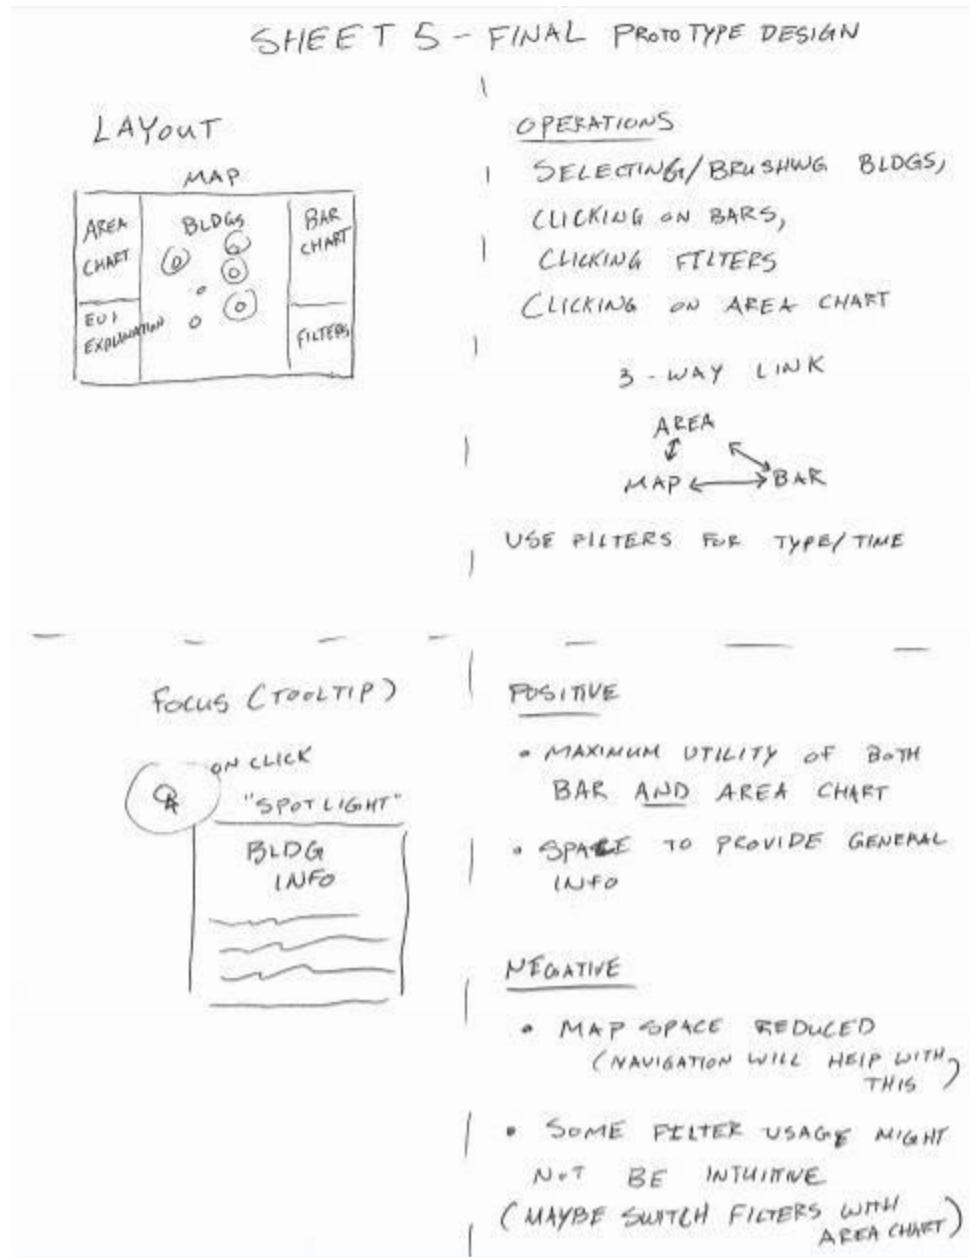 SHEET 5 - FINAL PROTOTYPE DESIGN
LAYOUT
MAP
AREA
CHART
EUI
EXPLANATION
BLDGS
BAR
CHART
FILTERS
OPERATIONS
SELECTING/BRUSHING BLDGS,
CLICKING ON BARS,
CLICKING FILTERS
CLICKING ON AREA CHART
3-WAY LINK
AREA
MAP BAR
USE FILTERS FOR TYPE/TIME
FOCUS (TOOLTIP)
ON CLICK
"SPOTLIGHT"
BLDG
INFO
POSITIVE
• MAXIMUM UTILITY OF BOTH
BAR AND AREA CHART
• SPACE TO PROVIDE GENERAL
INFO
NEGATIVE
• MAP SPACE REDUCED
(NAVIGATION WILL HELP WITH
THIS)
• SOME FILTER USAGE MIGHT
NOT BE INTUITIVE
(MAYBE SWITCH FILTERS WITH
AREA CHART)